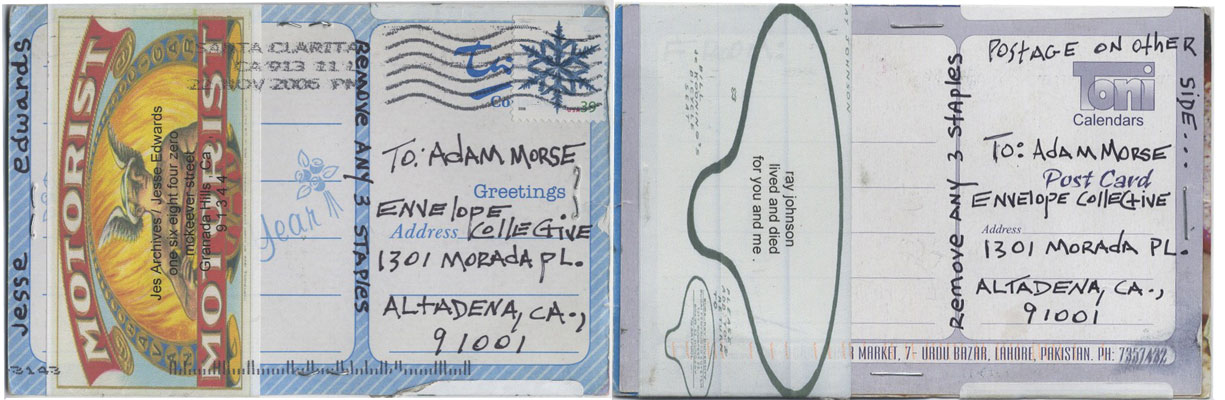 Jesse Edwards
MOTORIST
MOTORIST
Jes Archives / Jesse Edwards
one six eight four zero
mckeever street
Grenada Hills , Ca .
9 1 3 4 4
SANTA CLARITA
CA 913
22 NOV 2006 PM
Year
REMOVE ANY 3 STAPLES
39
TO: ADAM MORSE
Greetings
ENVELOPE
Address COLLECTIVE
1301 MORADA PL.
ALTADENA, CA.,
91001
ray johnson
lived and died
for you and me .
REMOVE ANY 3 STAPLES
POSTAGE ON OTHER SIDE...
Toni
Calendars
TO: ADAM MORSE
Post Card
ENVELOPE COLLECTIVE
Address
1301 MORADA PL.
ALTADENA, CA.,
91001
MARKET, 7- URDU BAZAR, LAHORE, PAKISTAN. PH: 7357432